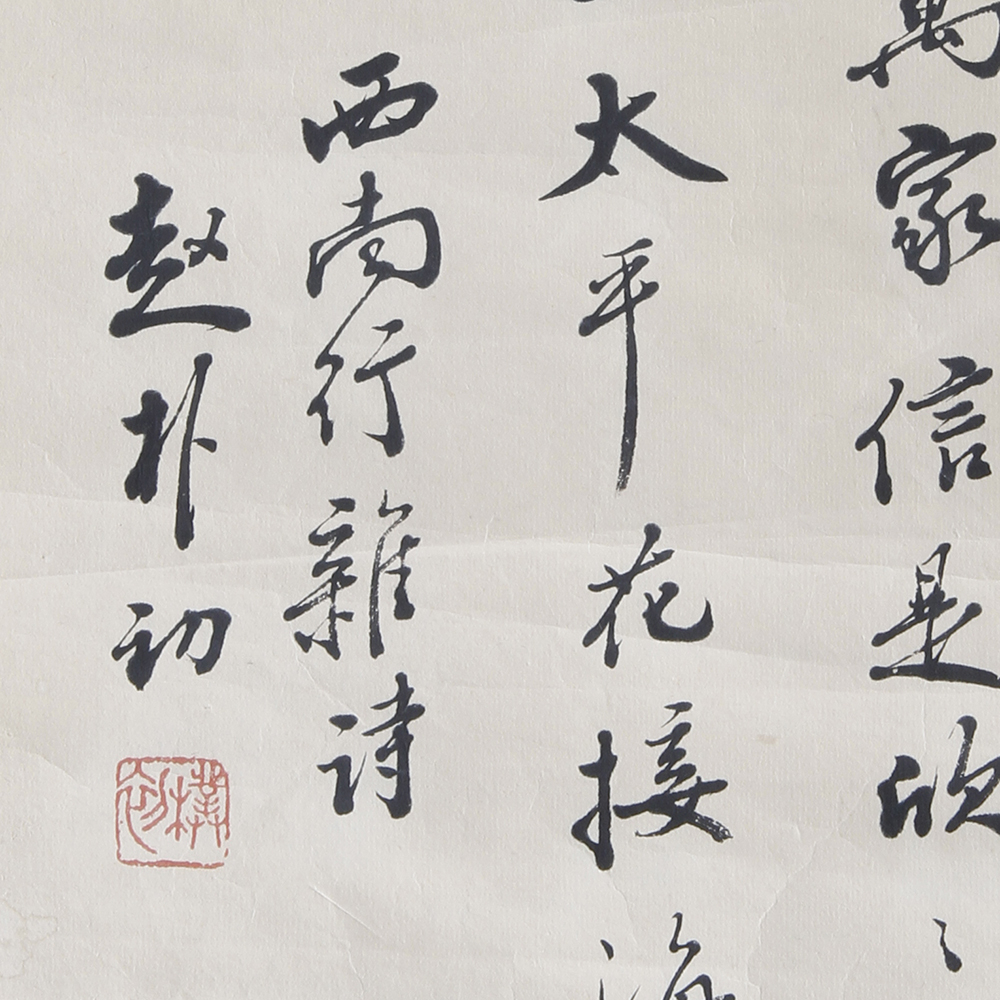 萬家信是欣
太平花接海
西南行雜詩
趙朴初
樸初